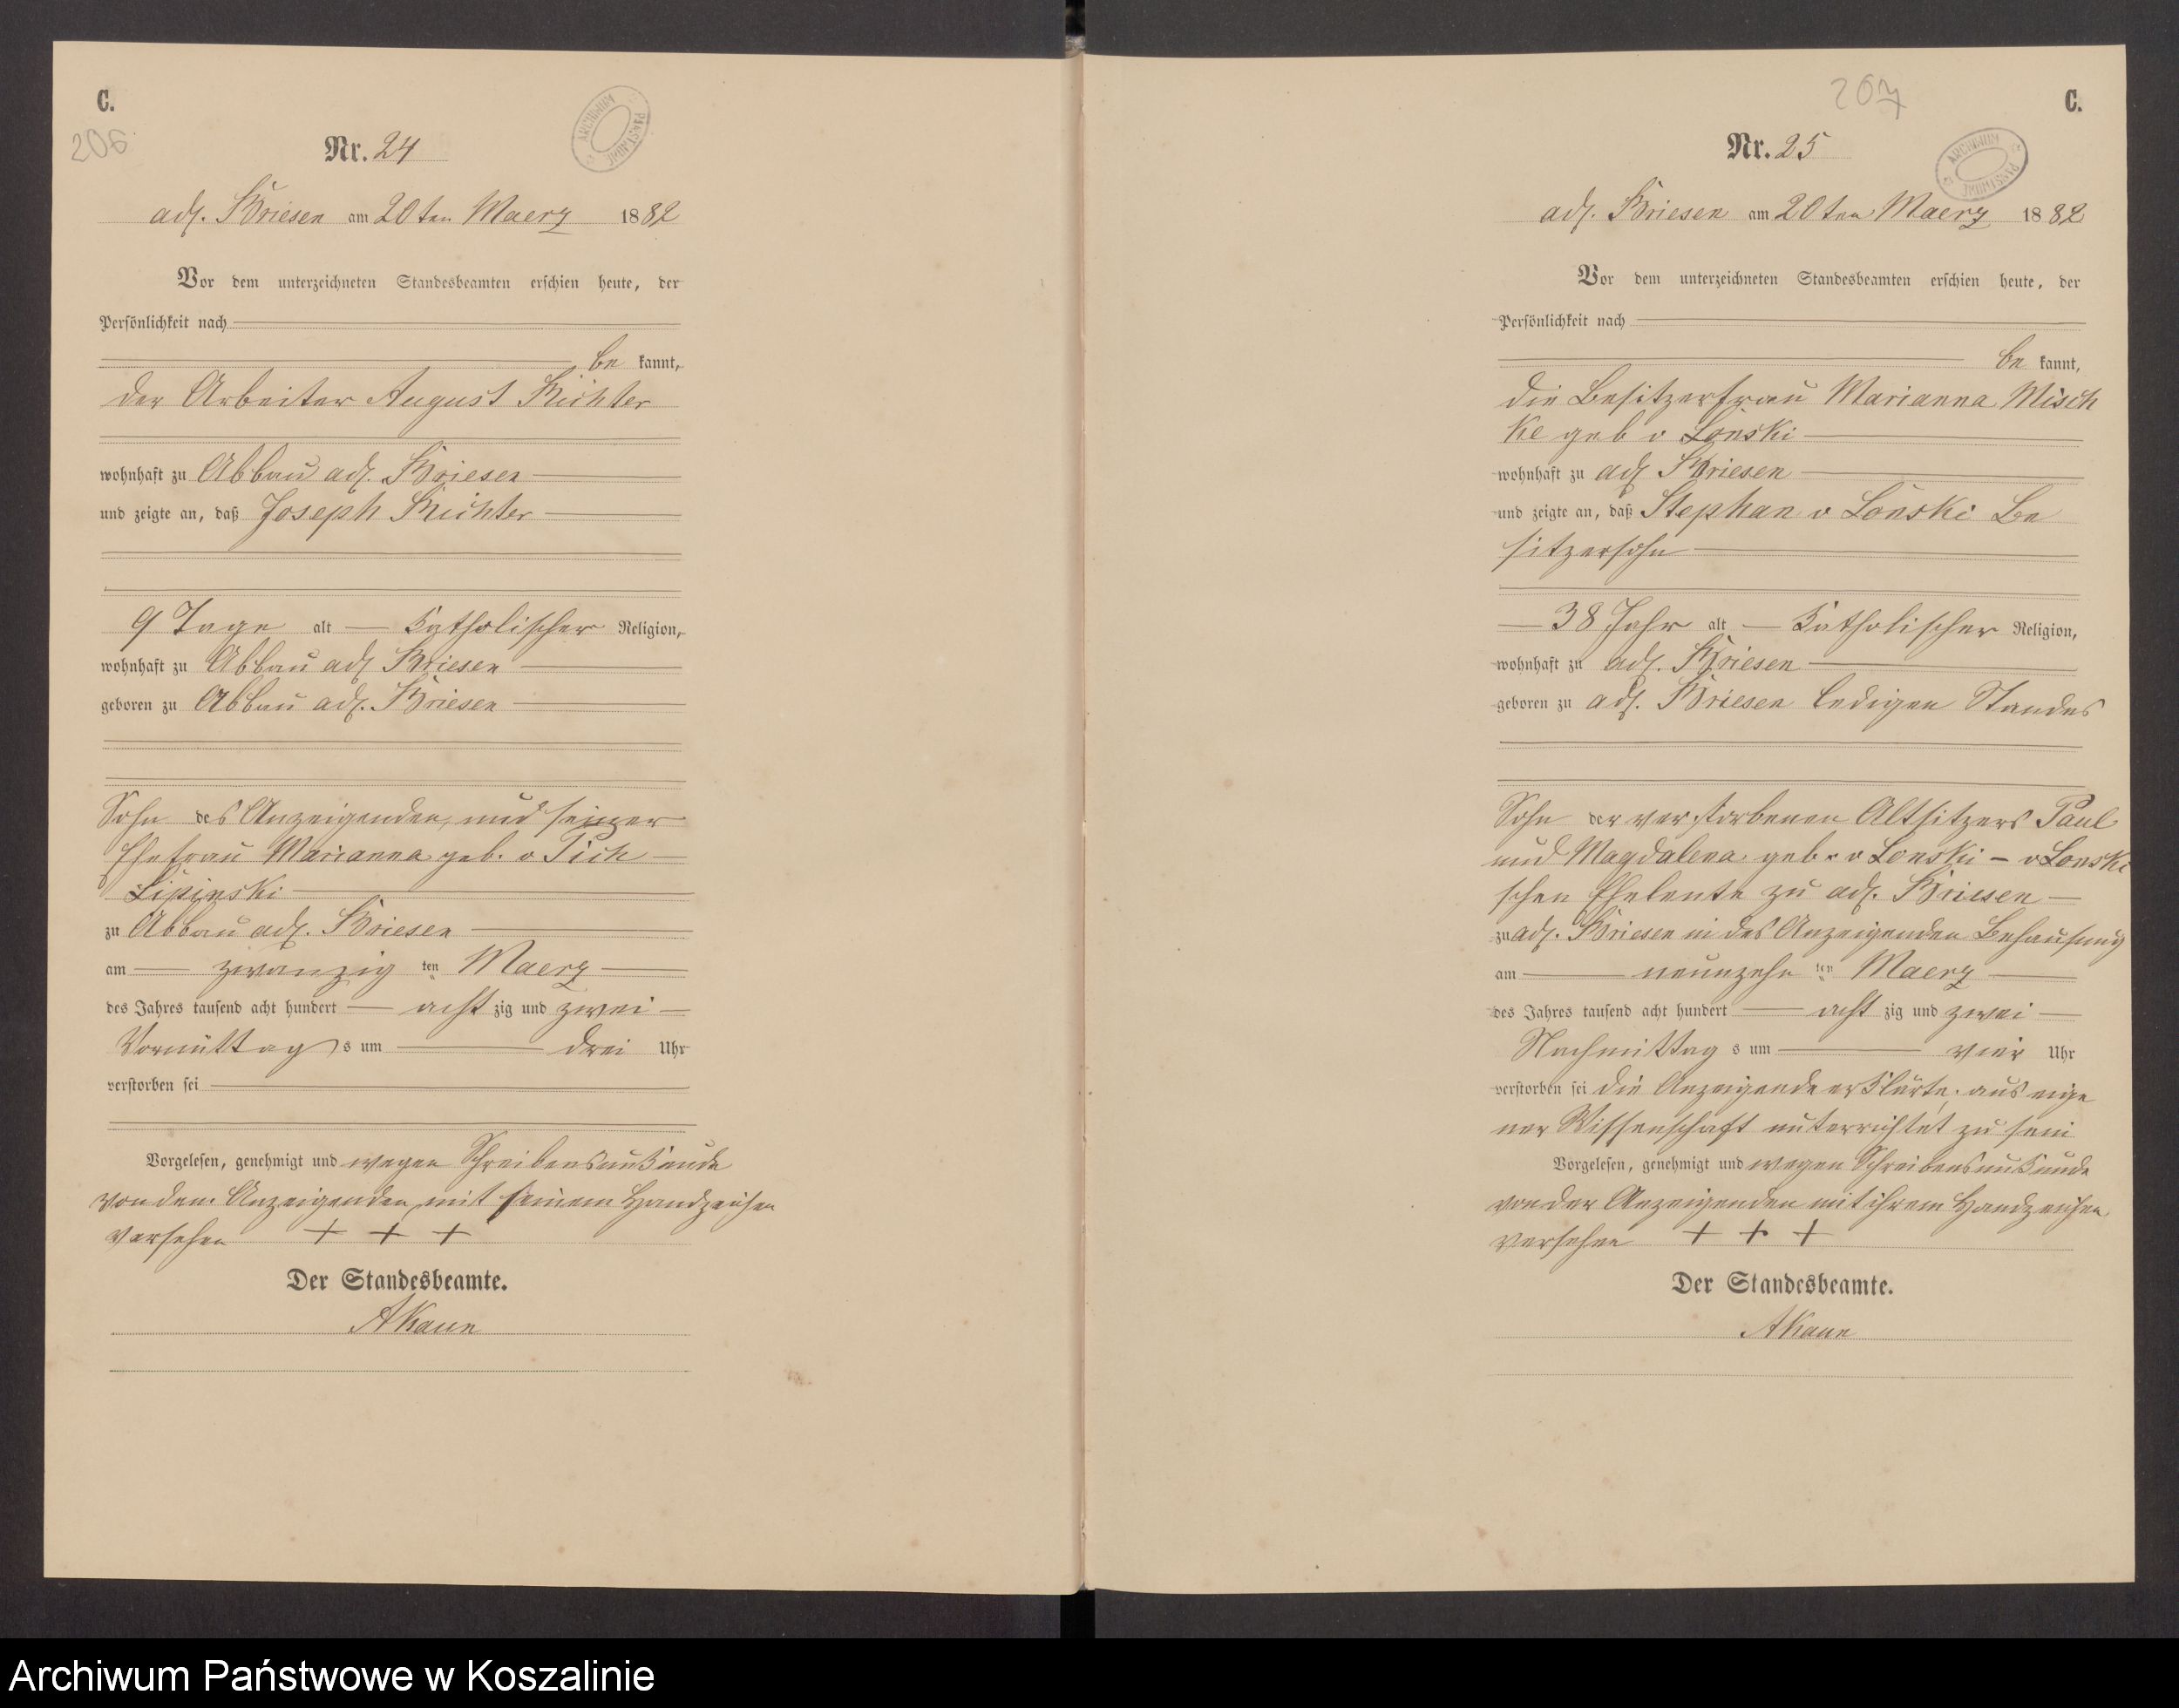 C.
206
Nr. 24
ARCHIWUM PAŃSTWOWE
adl. Briesen am 20ten Maerz 1882
Vor dem unterzeichneten Standesbeamten erschien heute, der
Persönlichkeit nach
be kannt,
der Arbeiter August Richter
wohnhaft zu Abbau adl. Briesen
und zeigte an, daß Joseph Richter
9 Tage alt katholischer Religion,
wohnhaft zu Abbau adl Briesen
geboren zu Abbau adl. Briesen
Sohn des Anzeigenden, und seiner
Ehefrau Marianna geb. v Pich
Lipinski
zu Abbau adl. Briesen
am zwanzig ten Maerz
des Jahres tausend acht hundert acht zig und zwei
Vormittag s um drei Uhr
verstorben sei
Vorgelesen, genehmigt und wegen Schreibensunkunde
von dem Anzeigenden mit seinem Handzeichen
versehen + + +
Der Standesbeamte.
AKaun
207
C.
Nr. 25
ARCHIWUM PAŃSTWOWE
adl. Briesen am 20ten Maerz 1882
Vor dem unterzeichneten Standesbeamten erschien heute, der
Persönlichkeit nach
be kannt,
die Besitzerfrau Marianna Misch
ke geb v Lonski
wohnhaft zu adl Briesen
und zeigte an, daß Stephan v Lonski Be
sitzersohn
38 Jahr alt katholischer Religion,
wohnhaft zu adl. Briesen
geboren zu adl. Briesen ledigen Standes
Sohn der verstorbenen Altsitzers Paul
und Magdalena geb. v Lonski - v Lonski
schen Eheleute zu adl. Briesen
zu adl. Briesen in des Anzeigenden Behausung
am neunzehn ten Maerz
des Jahres tausend acht hundert acht zig und zwei
Nachmittag s um vier Uhr
verstorben sei die Anzeigende erklärte, aus eige
ner Wissenschaft unterrichtet zu sein
Vorgelesen, genehmigt und wegen Schreibensunkunde
von der Anzeigenden mit ihrem Handzeichen
versehen + + +
Der Standesbeamte.
AKaun
Archiwum Państwowe w Koszalinie